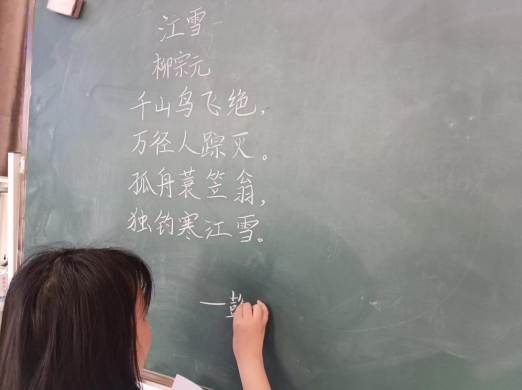 江雪
柳宗元
千山鸟飞绝，
万径人踪灭。
孤舟蓑笠翁，
独钓寒江雪。
一